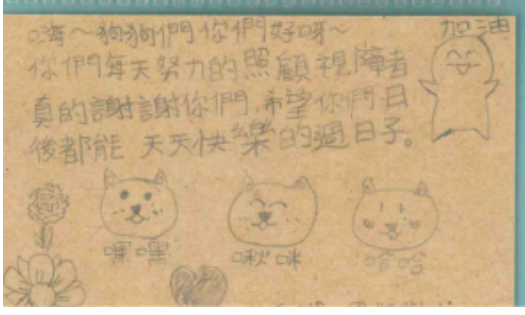 嗨～狗狗們你們好呀～
加油
你們每天努力的照顧視障者
真的謝謝你們,希望你們日
後都能 天天快樂的過日子。
嘿嘿
啾咪
哈哈